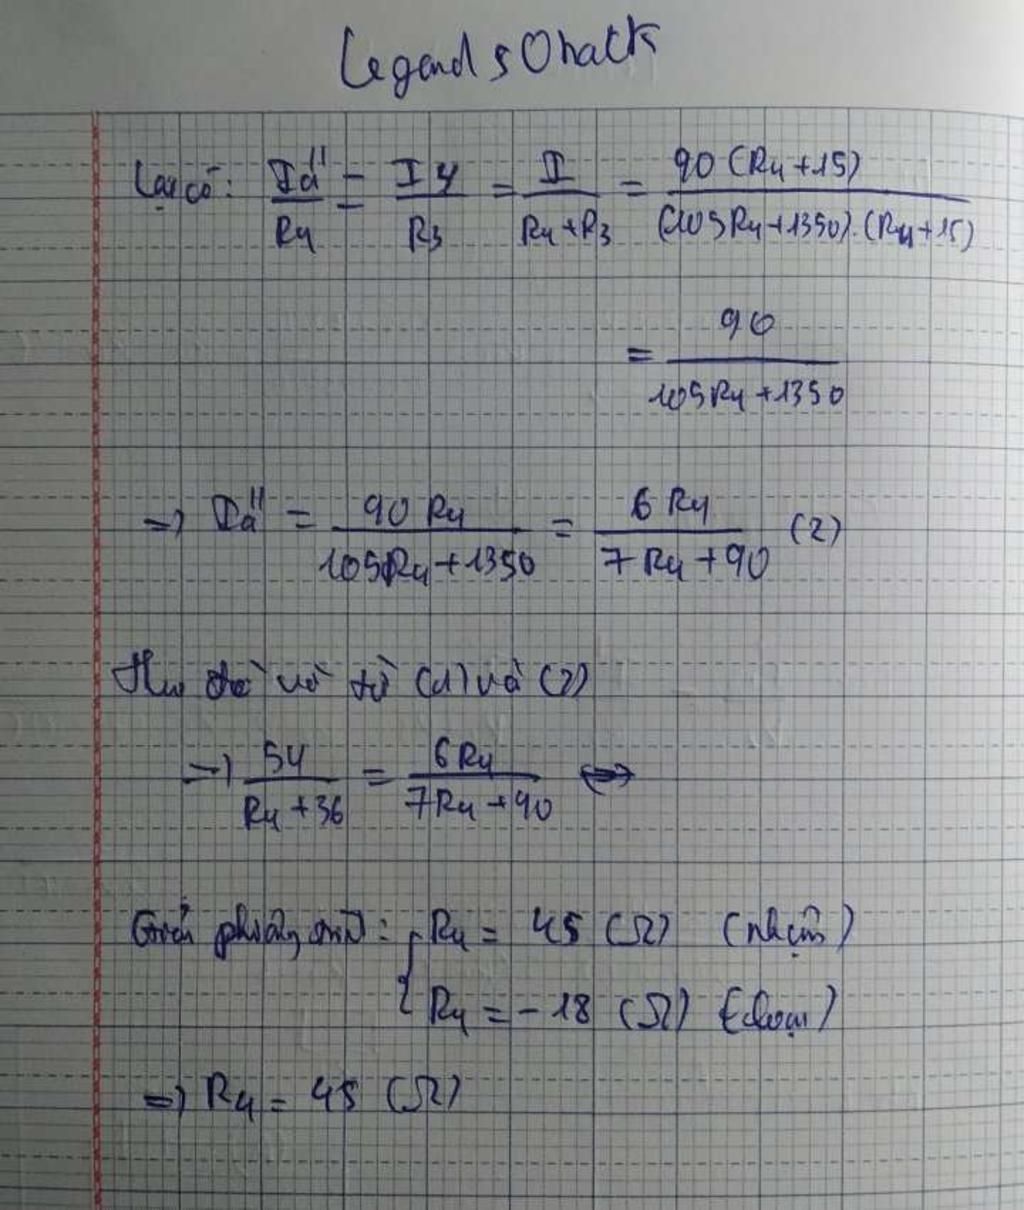 Legends Ohatk
Lại có: Iá''/R4 = I4/R3 = I/(R4+R3) = 90(R4+15)/((105R4+1350).(R4+15))
= 90/(105R4+1350)
=> Iá'' = 90R4/(105R4+1350) = 6R4/(7R4+90) (2)
từ (1) và (2)
=> 54/(R4+36) = 6R4/(7R4+90) <=>
Giải phương trình: { R4 = 45 (Ω) (nhận)
R4 = -18 (Ω) (loại)
=> R4 = 45 (Ω)